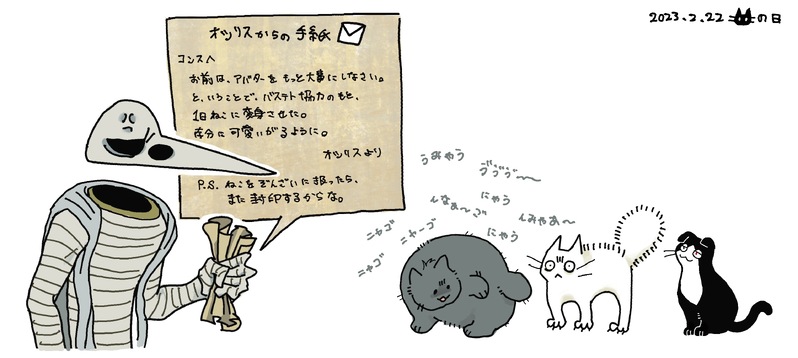 2023.2.22 の日
オシリスからの手紙
コンスへ
お前は、アバターをもっと大事にしなさい。
と、いうことで、バステト協力のもと、
1日ねこに変身させた。
存分に可愛いがるように。
オシリスより
P.S. ねこをぞんざいに扱ったら、
また封印するからな。
うみゃう
ヴヴヴ〜
にゃう
しなぁ〜ご
しみゃあ〜
ニャゴ
ニャーゴ
にゃう
ニャゴ